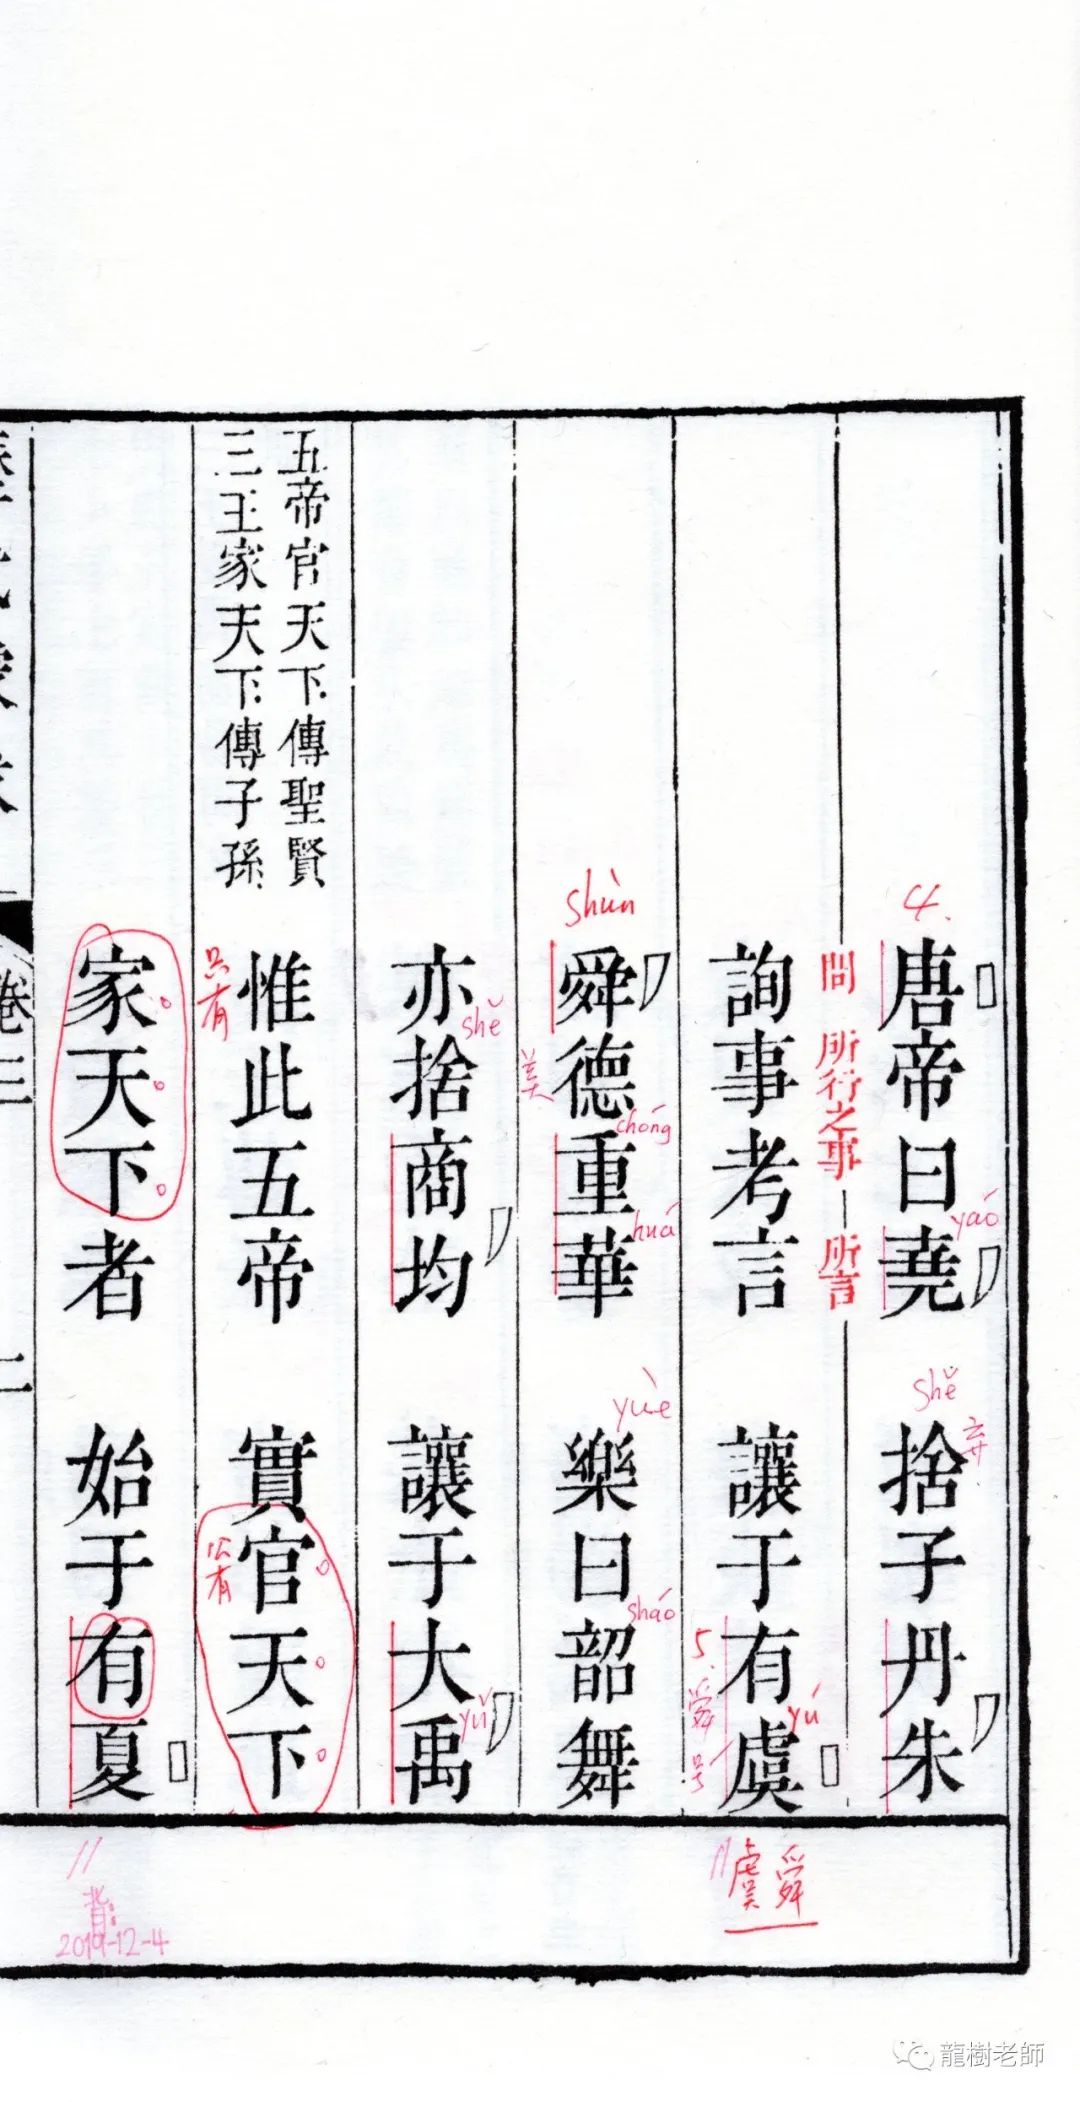 4.
唐帝曰堯 捨子丹朱
yáo
shě
弃
問 所行之事 所言
詢事考言 讓于有虞
yú
5.舜号
shùn
舜德重華 樂曰韶舞
chóng
huá
yuè
sháo
美
亦捨商均 讓于大禹
shě
yǔ
五帝官天下傳聖賢
三王家天下傳子孫
惟此五帝 實官天下
只有
公有
家天下者 始于有夏
卷三
二
虞舜
背:
2019-12-4
龍樹老師